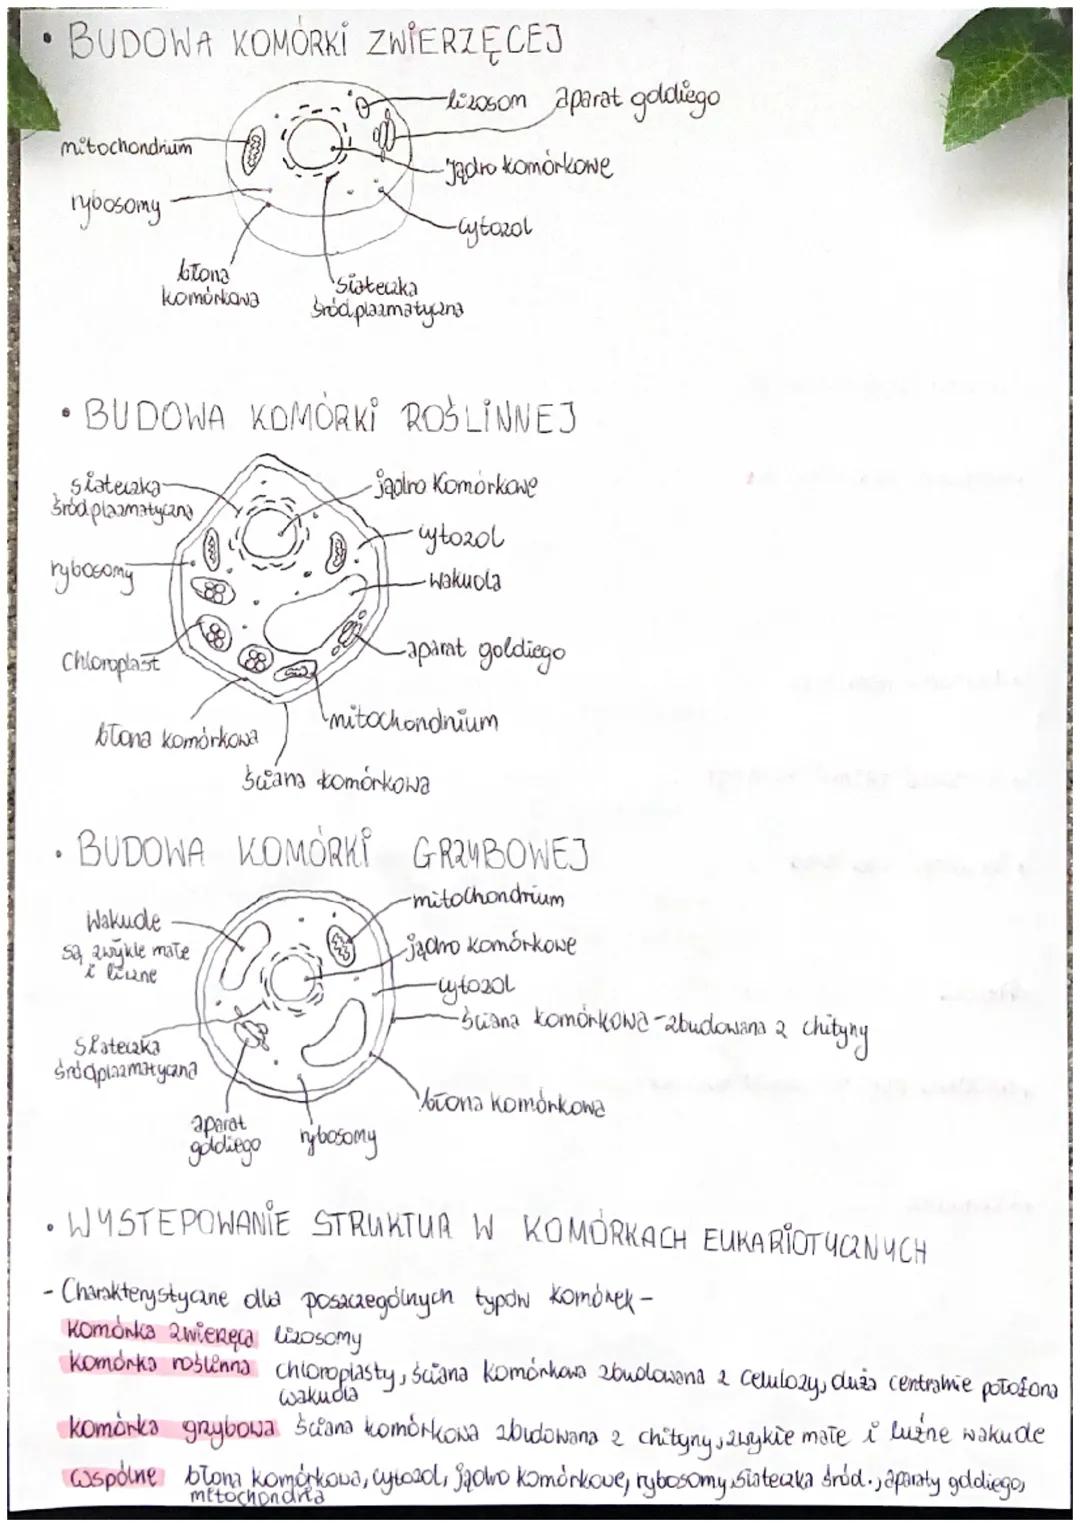 • BUDOWA KOMÓRKI ZWIERZĘCEJ
lizosom
aparat goldiego
mitochondrium
jądro komórkowe
rybosomy
cytozol
błona
komórkowa
siateczka
śródplazmatyczna
• BUDOWA KOMÓRKI ROŚLINNEJ
siateczka
śródplazmatyczna
jądro komórkowe
cytozol
rybosomy
wakuola
aparat goldiego
Chloroplast
mitochondrium
błona komórkowa
ściana komórkowa
• BUDOWA KOMÓRKI GRZYBOWEJ
mitochondrium
Wakuole
są zwykle małe
i liczne
jądro komórkowe
cytozol
ściana komórkowa - zbudowana z chityny
siateczka
śródplazmatyczna
błona komórkowa
aparat
goldiego
rybosomy
• WYSTEPOWANIE STRUKTUR W KOMÓRKACH EUKARIOTYCZNYCH
- Charakterystyczne dla poszczególnych typów komórek -
komórka zwierzęca lizosomy
komórka roślinna chloroplasty, ściana komórkowa zbudowana z celulozy, duża centralnie położona
wakuola
komórka grzybowa ściana komórkowa zbudowana z chityny, zwykle małe i luźne wakuole
wspólne błona komórkowa, cytozol, jądro komórkowe, rybosomy, siateczka śród., aparaty goldiego,
mitochondria